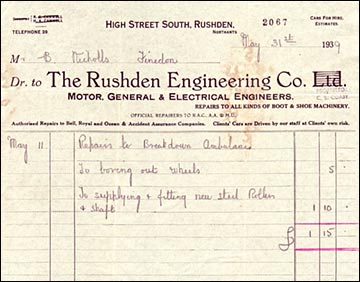 TELEPHONE 39
HIGH STREET SOUTH, RUSHDEN,
NORTHANTS
2067
CARS FOR HIRE.
ESTIMATES.
May 31st 1939
Mr B. Nicholls Finedon
Dr. to The Rushden Engineering Co. Ltd.
MOTOR, GENERAL & ELECTRICAL ENGINEERS.
REPAIRS TO ALL KINDS OF BOOT & SHOE MACHINERY.
OFFICIAL REPAIRERS TO R.A.C., A.A. & M.U.
Authorised Repairs to Bell, Royal and Ocean & Accident Assurance Companies. Clients' Cars are Driven by our staff at Clients' Own risk.
May 11 Repairs to Breakdown Ambulance
To boring out wheels 5
To supplying & fitting new steel
& shaft 1 10
£ 1 15